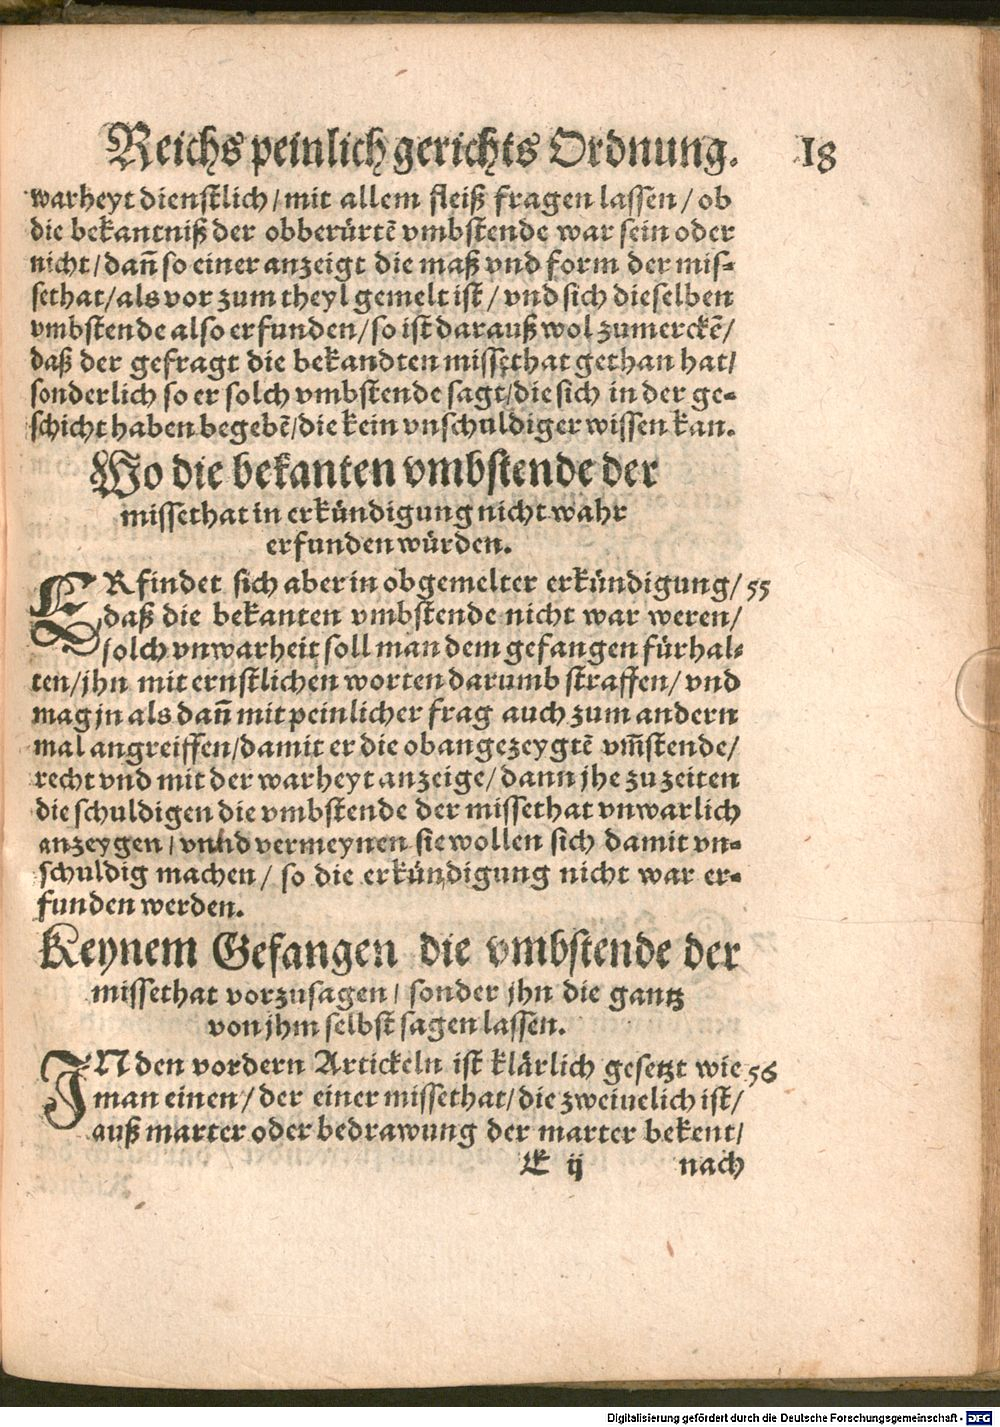 Reichs peinlich gerichts Ordnung. 18
warheyt dienstlich / mit allem fleiß fragen lassen / ob
die bekantniß der obberürtē vmbstende war sein oder
nicht / dañ so einer anzeigt die maß vnd form der mis-
sethat / als vor zum theyl gemelt ist / vnd sich dieselben
vmbstende also erfunden / so ist darauß wol zumerckē /
daß der gefragt die bekandten missethat gethan hat /
sonderlich so er solch vmbstende sagt / die sich in der ge-
schicht haben begebē / die kein vnschuldiger wissen kan.
Wo die bekanten vmbstende der
missethat in erkündigung nicht wahr
erfunden würden.
ERfindet sich aber in obgemelter erkündigung / 55
daß die bekanten vmbstende nicht war weren /
solch vnwarheit soll man dem gefangen fürhal-
ten / jhn mit ernstlichen worten darumb straffen / vnd
mag jn als dañ mit peinlicher frag auch zum andern
mal angreiffen / damit er die obangezeygtē vm̃stende /
recht vnd mit der warheyt anzeige / dann jhe zu zeiten
die schuldigen die vmbstende der missethat vnwarlich
anzeygen / vnnd vermeynen sie wollen sich damit vn-
schuldig machen / so die erkündigung nicht war er-
funden werden.
Keynem Gefangen die vmbstende der
missethat vorzusagen / sonder jhn die gantz
von jhm selbst sagen lassen.
IN den vordern Artickeln ist klärlich gesetzt wie 56
man einen / der einer missethat / die zweiuelich ist /
auß marter oder bedrawung der marter bekent /
E ij nach
Digitalisierung gefördert durch die Deutsche Forschungsgemeinschaft - DFG